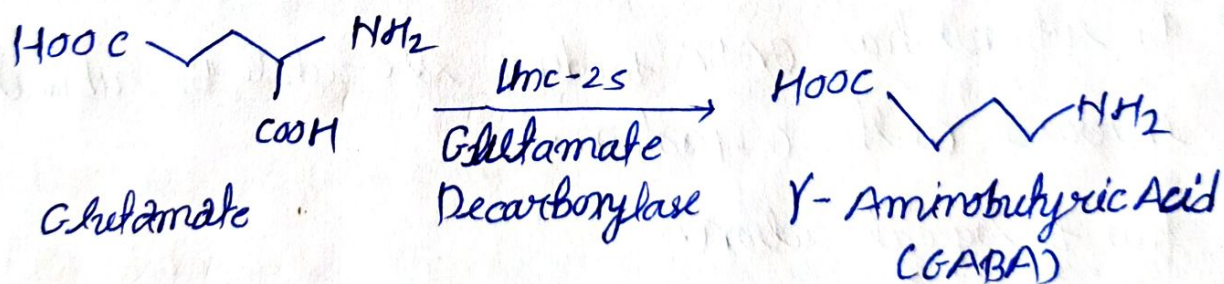 HOOC
NH2
COOH
Glutamate
Unc-25
Glutamate
Decarboxylase
HOOC
NH2
γ- Aminobutyric Acid
(GABA)